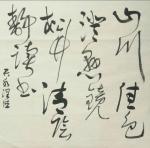 山川佳色
澄懸鏡
松竹清陰
静讀書